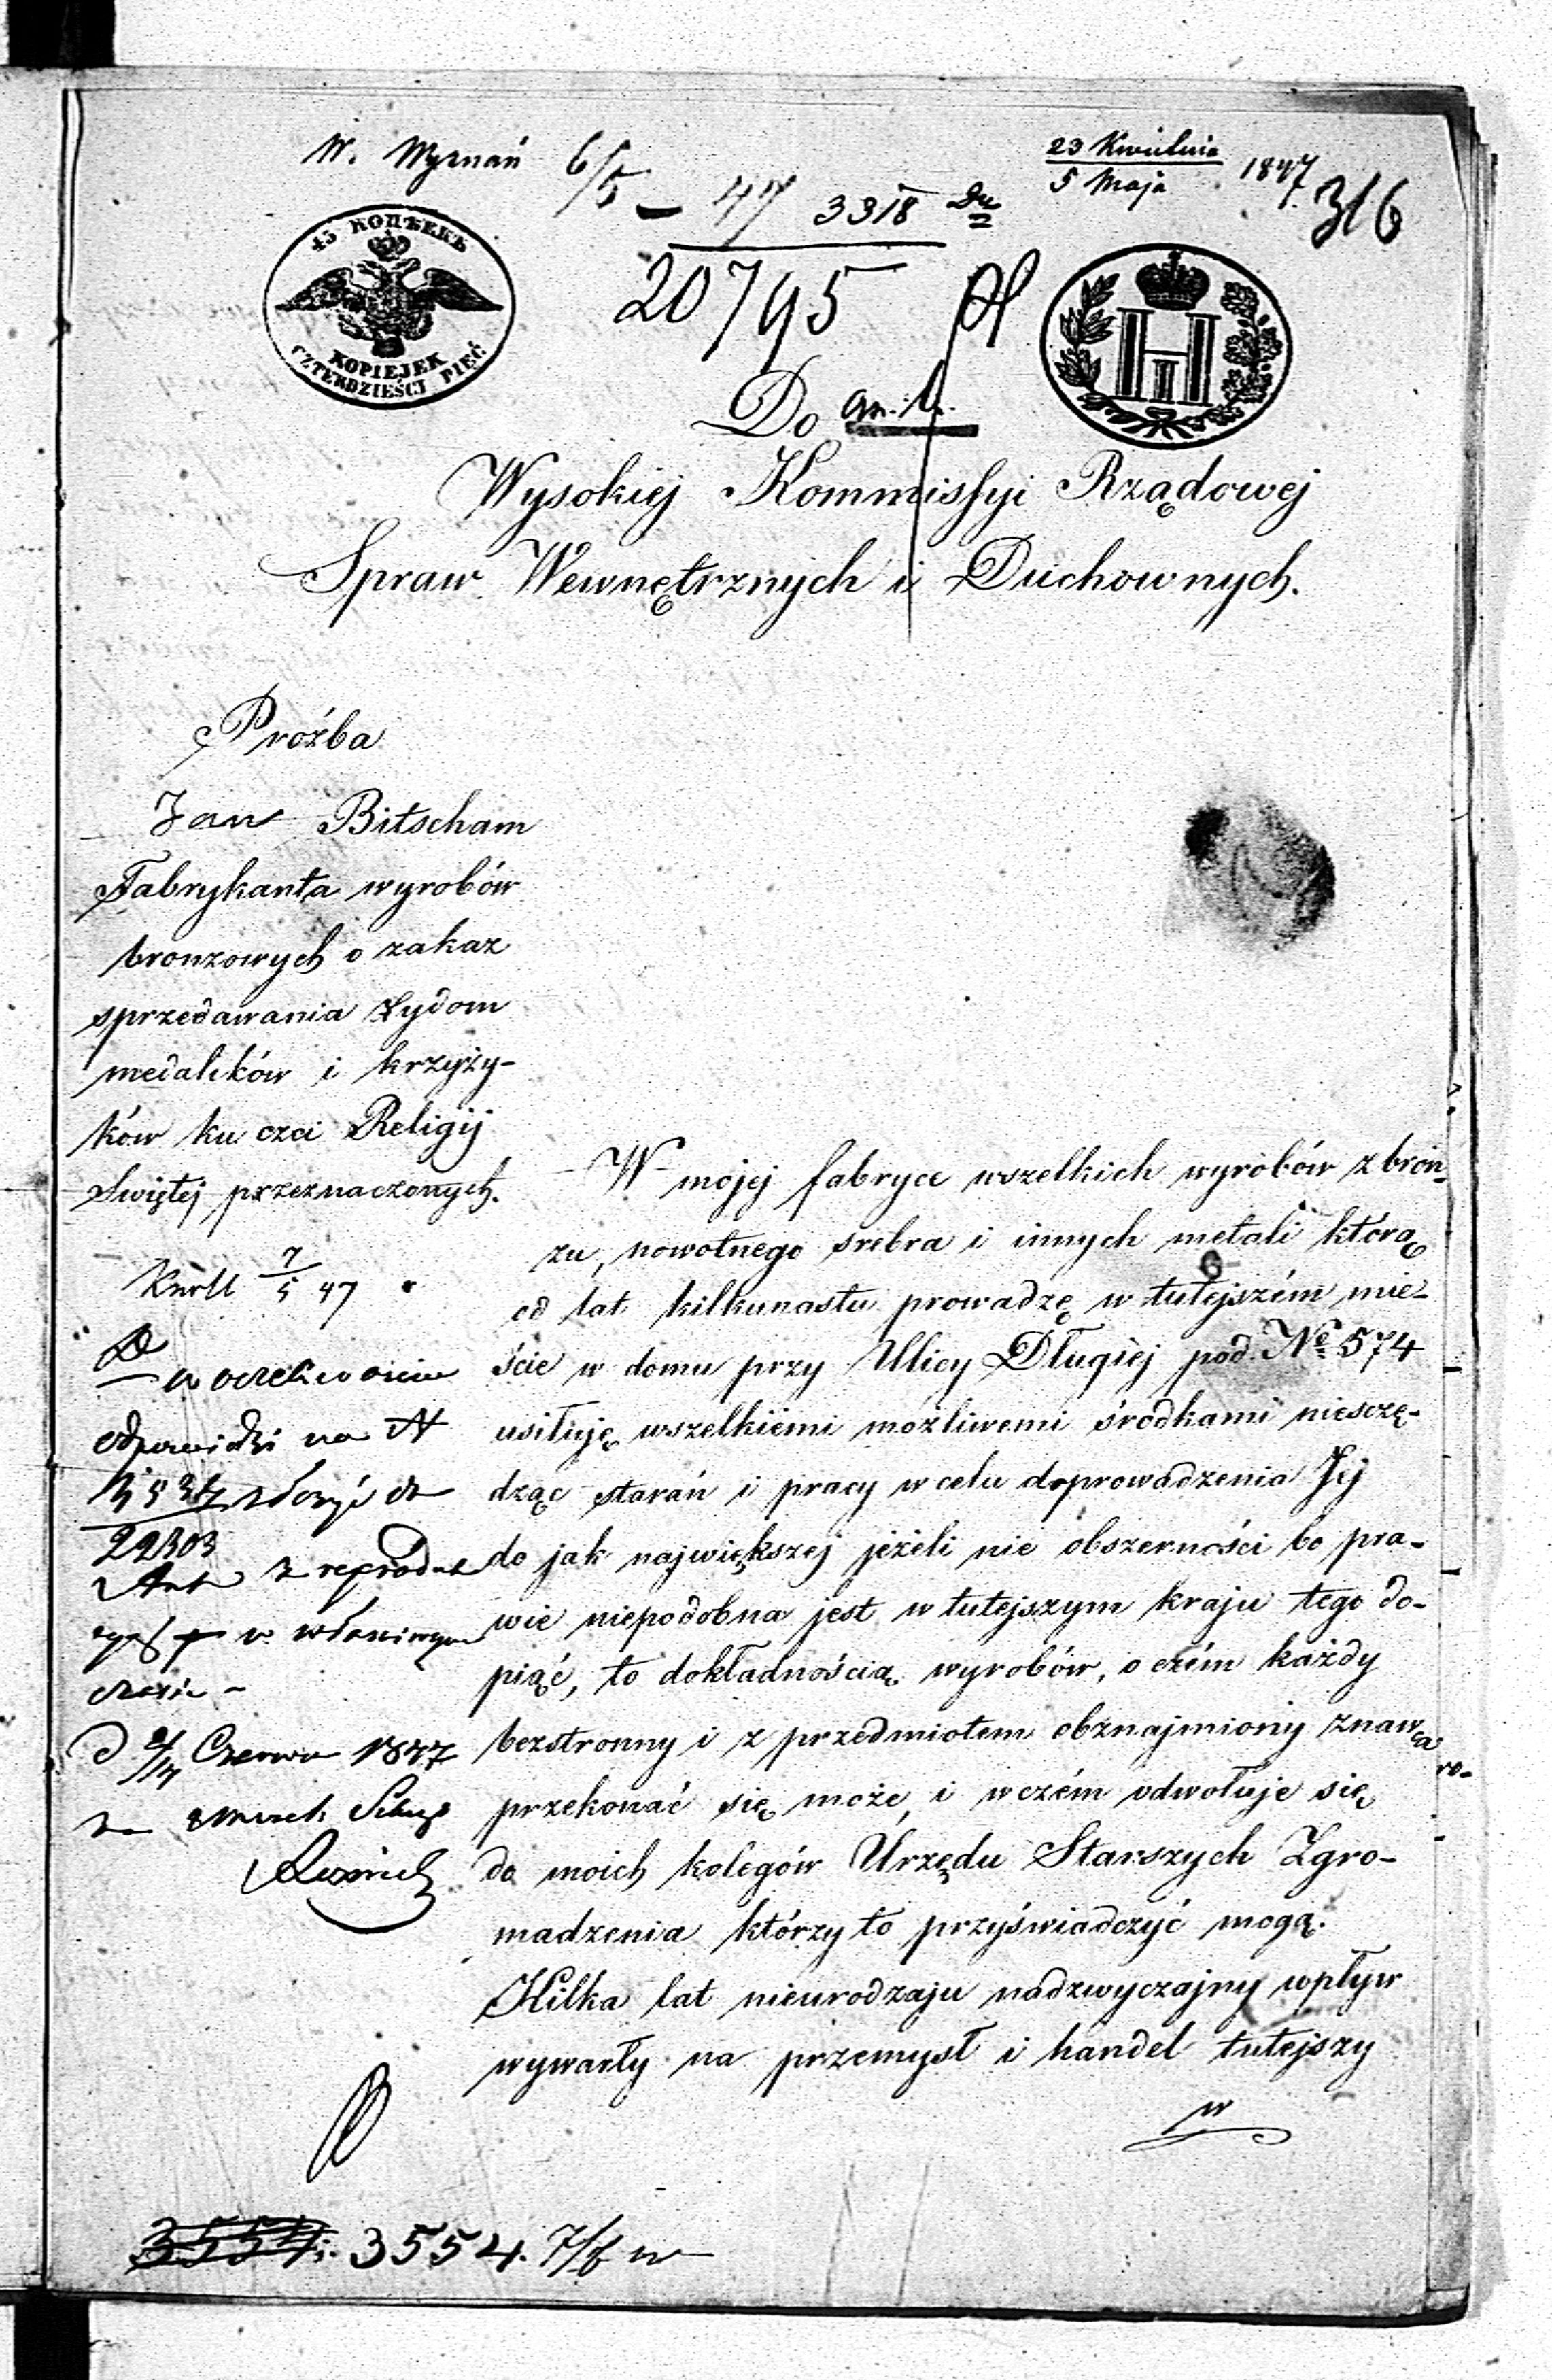 W. Wyznań 6/5 – 47 3318
23 Kwietnia
5 Maja 1847
316
20795
45 КОПѢЕКЪ
KOPIEJEK
CZTERDZIEŚCI PIĘĆ
Do
Wysokiej Kommissyi Rządowej
Spraw Wewnętrznych i Duchownych.
Proźba
Jan Bitscham
Fabrykanta wyrobów
bronzowych o zakaz
sprzedawania Żydom
medalików i krzyży-
ków ku czci Religij
Swiętej przeznaczonych.
W mojej fabryce wszelkich wyrobów z bron-
zu, nowotnego srebra i innych metali którą
od lat kilkunastu prowadzę w tutejszém mie-
ście w domu przy Ulicy Długiej pod Nº 574
usiłuję wszelkiémi możliwemi środkami niesczę-
dząc starań i pracy w celu doprowadzenia Jej
do jak największej jeżeli nie obszerności bo pra-
wie niepodobna jest w tutejszym kraju tego do-
piąć, to dokładnością wyrobów, o czém każdy
bezstronny i z przedmiotem obznajmiony znawca
przekonać się może, i w czém odwołuje się
do moich kolegów Urzędu Starszych Zgro-
madzenia którzy to przyświadczyć mogą.
Kilka lat nieurodzaju nadzwyczajny wpływ
wywarły na przemysł i handel tutejszy
w
7/5 47
odpowiedzi na
22303
w właściwym
czasie –
Czerwca 1847
3554. 7/6